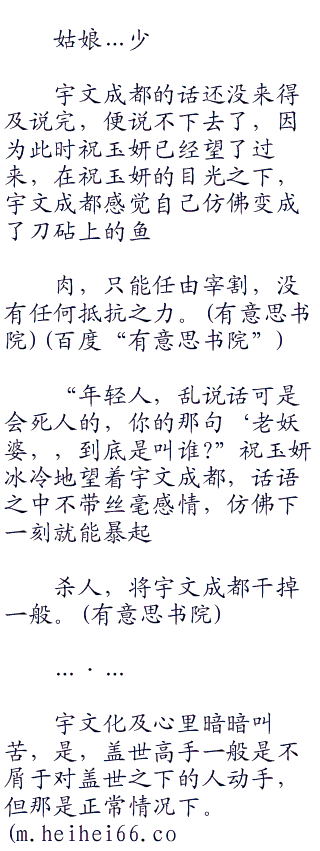 姑娘…少
宇文成都的话还没来得
及说完，便说不下去了，因
为此时祝玉妍已经望了过
来，在祝玉妍的目光之下，
宇文成都感觉自己仿佛变成
了刀砧上的鱼
肉，只能任由宰割，没
有任何抵抗之力。(有意思书
院)(百度“有意思书院”)
“年轻人，乱说话可是
会死人的，你的那句‘老妖
婆，，到底是叫谁?”祝玉妍
冰冷地望着宇文成都，话语
之中不带丝毫感情，仿佛下
一刻就能暴起
杀人，将宇文成都干掉
一般。(有意思书院)
…·…
宇文化及心里暗暗叫
苦，是，盖世高手一般是不
屑于对盖世之下的人动手，
但那是正常情况下。
(m.heihei66.co